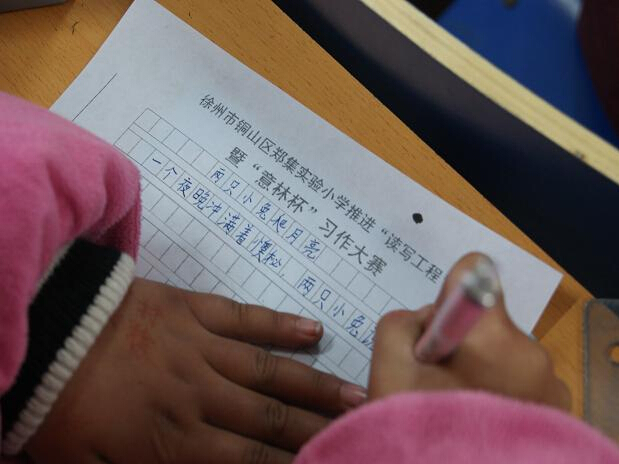 徐州市铜山区郑集实验小学推进“读写工程
暨“意林杯”习作大赛
两只小兔爬月亮
一个夜晚冲满着模松,两只小兔